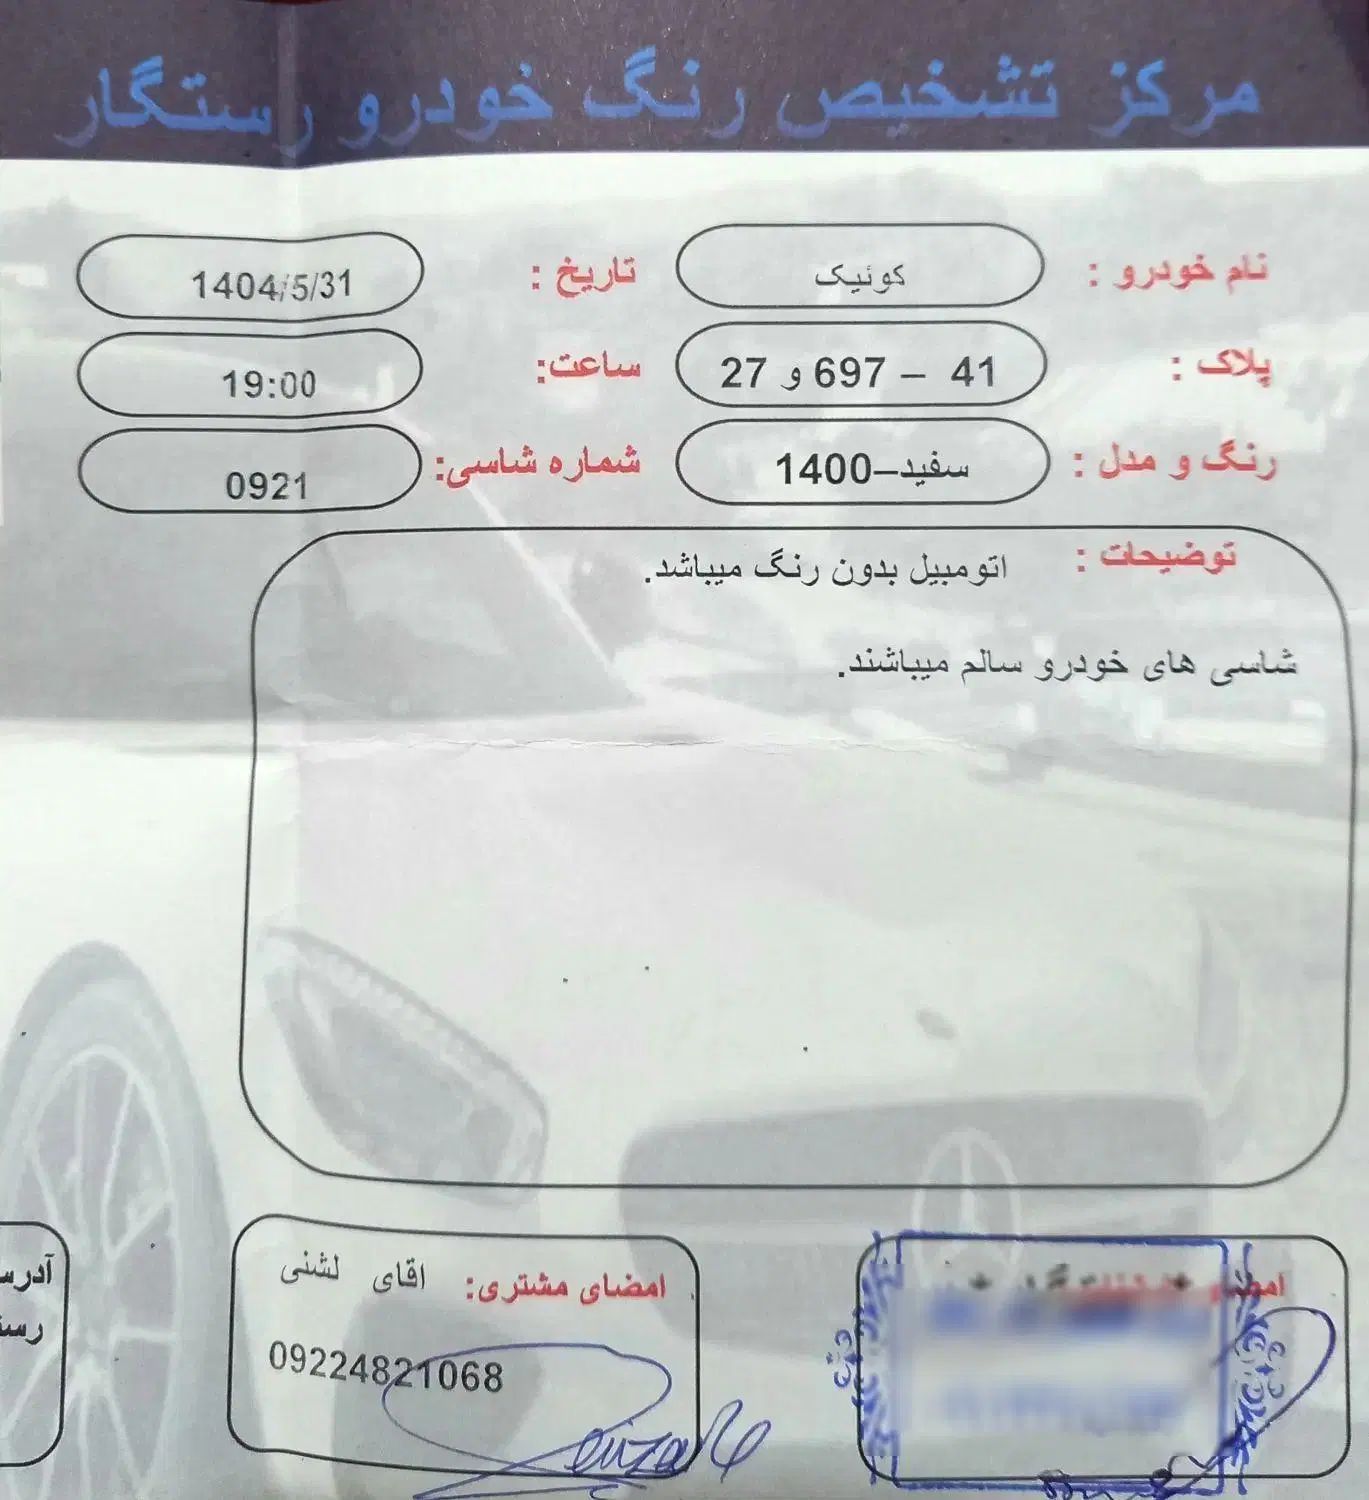 مرکز تشخیص رنگ خودرو رستگار
نام خودرو : کوئیک
تاریخ : 1404/5/31
پلاک : 27 و 697 – 41
ساعت: 19:00
رنگ و مدل : سفید–1400
شماره شاسی: 0921
توضیحات : اتومبیل بدون رنگ میباشد.
شاسی های خودرو سالم میباشند.
امضای
امضای مشتری: اقای لشنی
09224821068